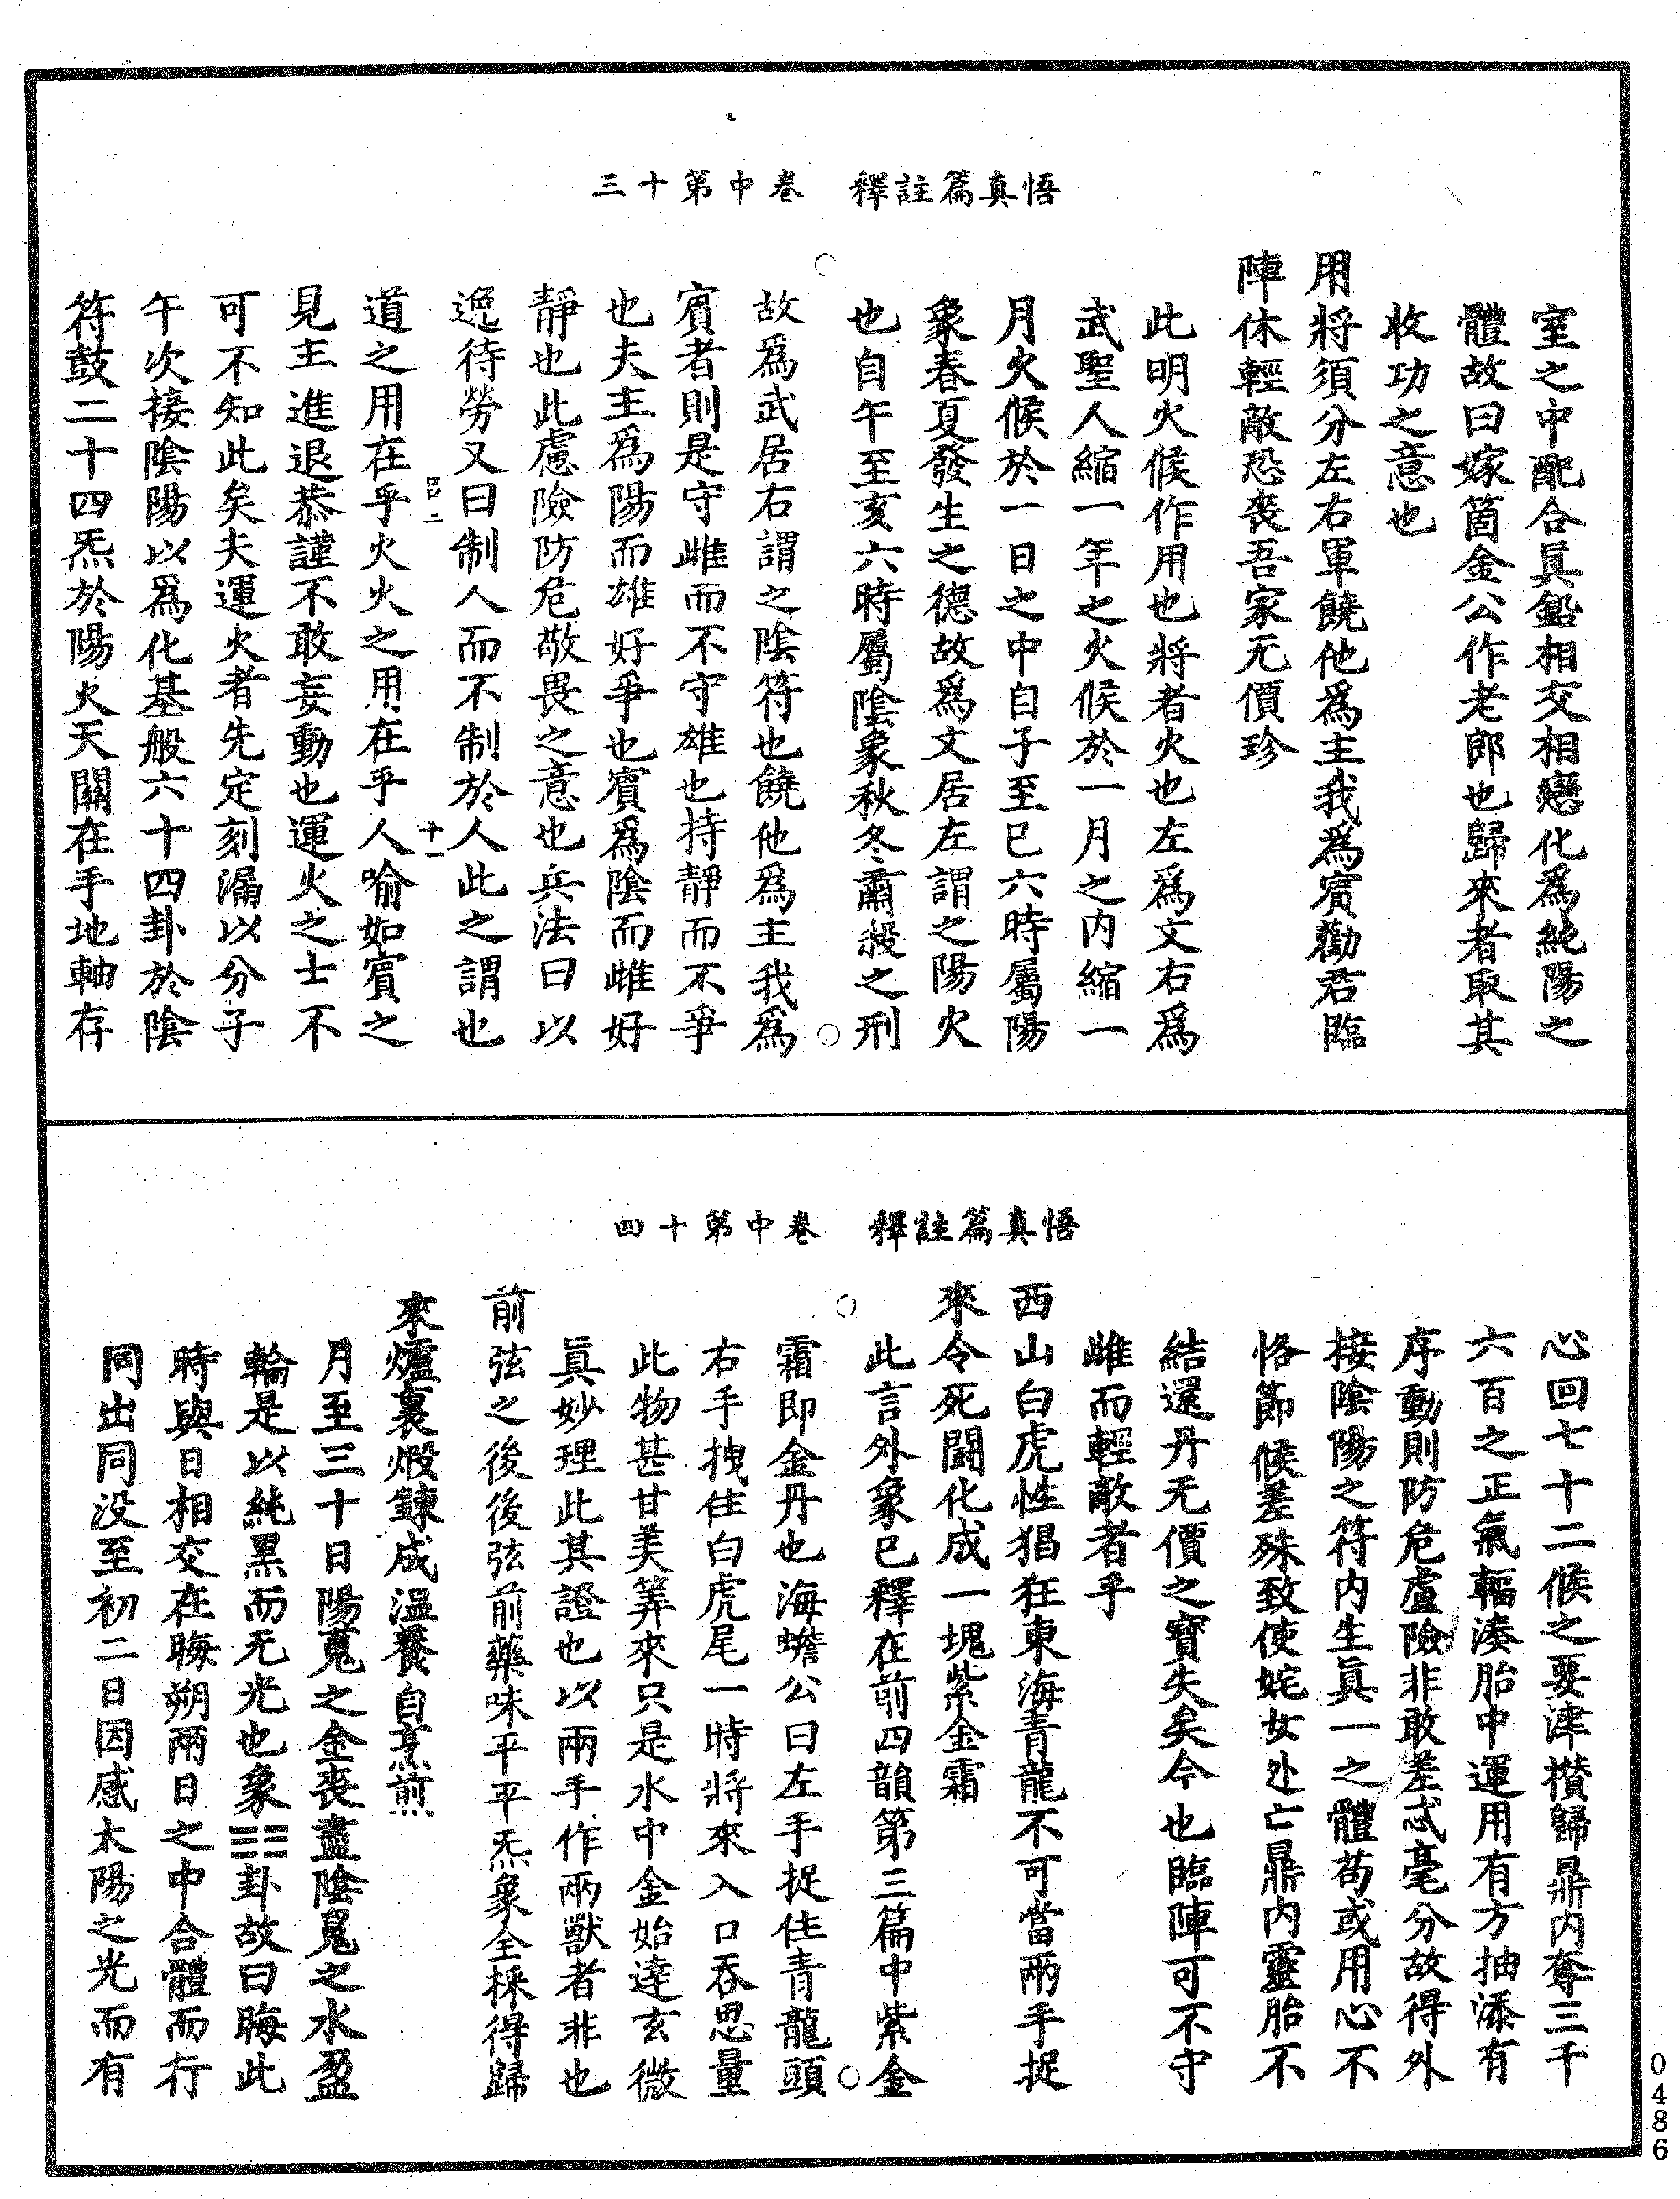 悟真篇註釋　卷中第十三
室之中配合眞鉛相交相戀化爲純陽之
體故曰嫁箇金公作老郎也歸來者取其
收功之意也
用將須分左右軍饒他爲主我爲賓勸君臨
陣休輕敵恐喪吾家无價珍
此明火候作用也將者火也左爲文右爲
武聖人縮一年之火候於一月之内縮一
月火候於一日之中自子至巳六時屬陽
象春夏發生之德故爲文居左謂之陽火
也自午至亥六時屬陰象秋冬肅殺之刑
故爲武居右謂之陰符也饒他爲主我爲
賓者則是守雌而不守雄也持靜而不爭
也夫主爲陽而雄好爭也賓爲陰而雌好
靜也此慮險防危敬畏之意也兵法曰以
逸待勞又曰制人而不制於人此之謂也
道之用在乎火火之用在乎人喻如賓之
見主進退恭謹不敢妄動也運火之士不
可不知此矣夫運火者先定刻漏以分子
午次接陰陽以爲化基般六十四卦於陰
符鼓二十四炁於陽火天關在手地軸存
悟真篇註釋　卷中第十四
心回七十二候之要津攢歸鼎内奪三千
六百之正氣輻湊胎中運用有方抽添有
序動則防危慮險非敢差忒毫分故得外
接陰陽之符内生眞一之體苟或用心不
恪節候差殊致使姹女处亡鼎内靈胎不
結還丹无價之寶失矣今也臨陣可不守
雌而輕敵者乎
西山白虎性猖狂東海青龍不可當兩手捉
來令死鬪化成一塊紫金霜
此言外象已釋在前四韻第三篇中紫金
霜即金丹也海蟾公曰左手捉住青龍頭
右手拽住白虎尾一時將來入口吞思量
此物甚甘美筭來只是水中金始達玄微
眞妙理此其證也以兩手作兩獸者非也
前弦之後後弦前藥味平平炁象全採得歸
來爐裏煅鍊成溫養自烹煎
月至三十日陽䰟之金喪盡陰鬼之水盈
輪是以純黑而无光也象☷卦故曰晦此
時與日相交在晦朔兩日之中合體而行
同出同没至初二日因感太陽之光而有
0486